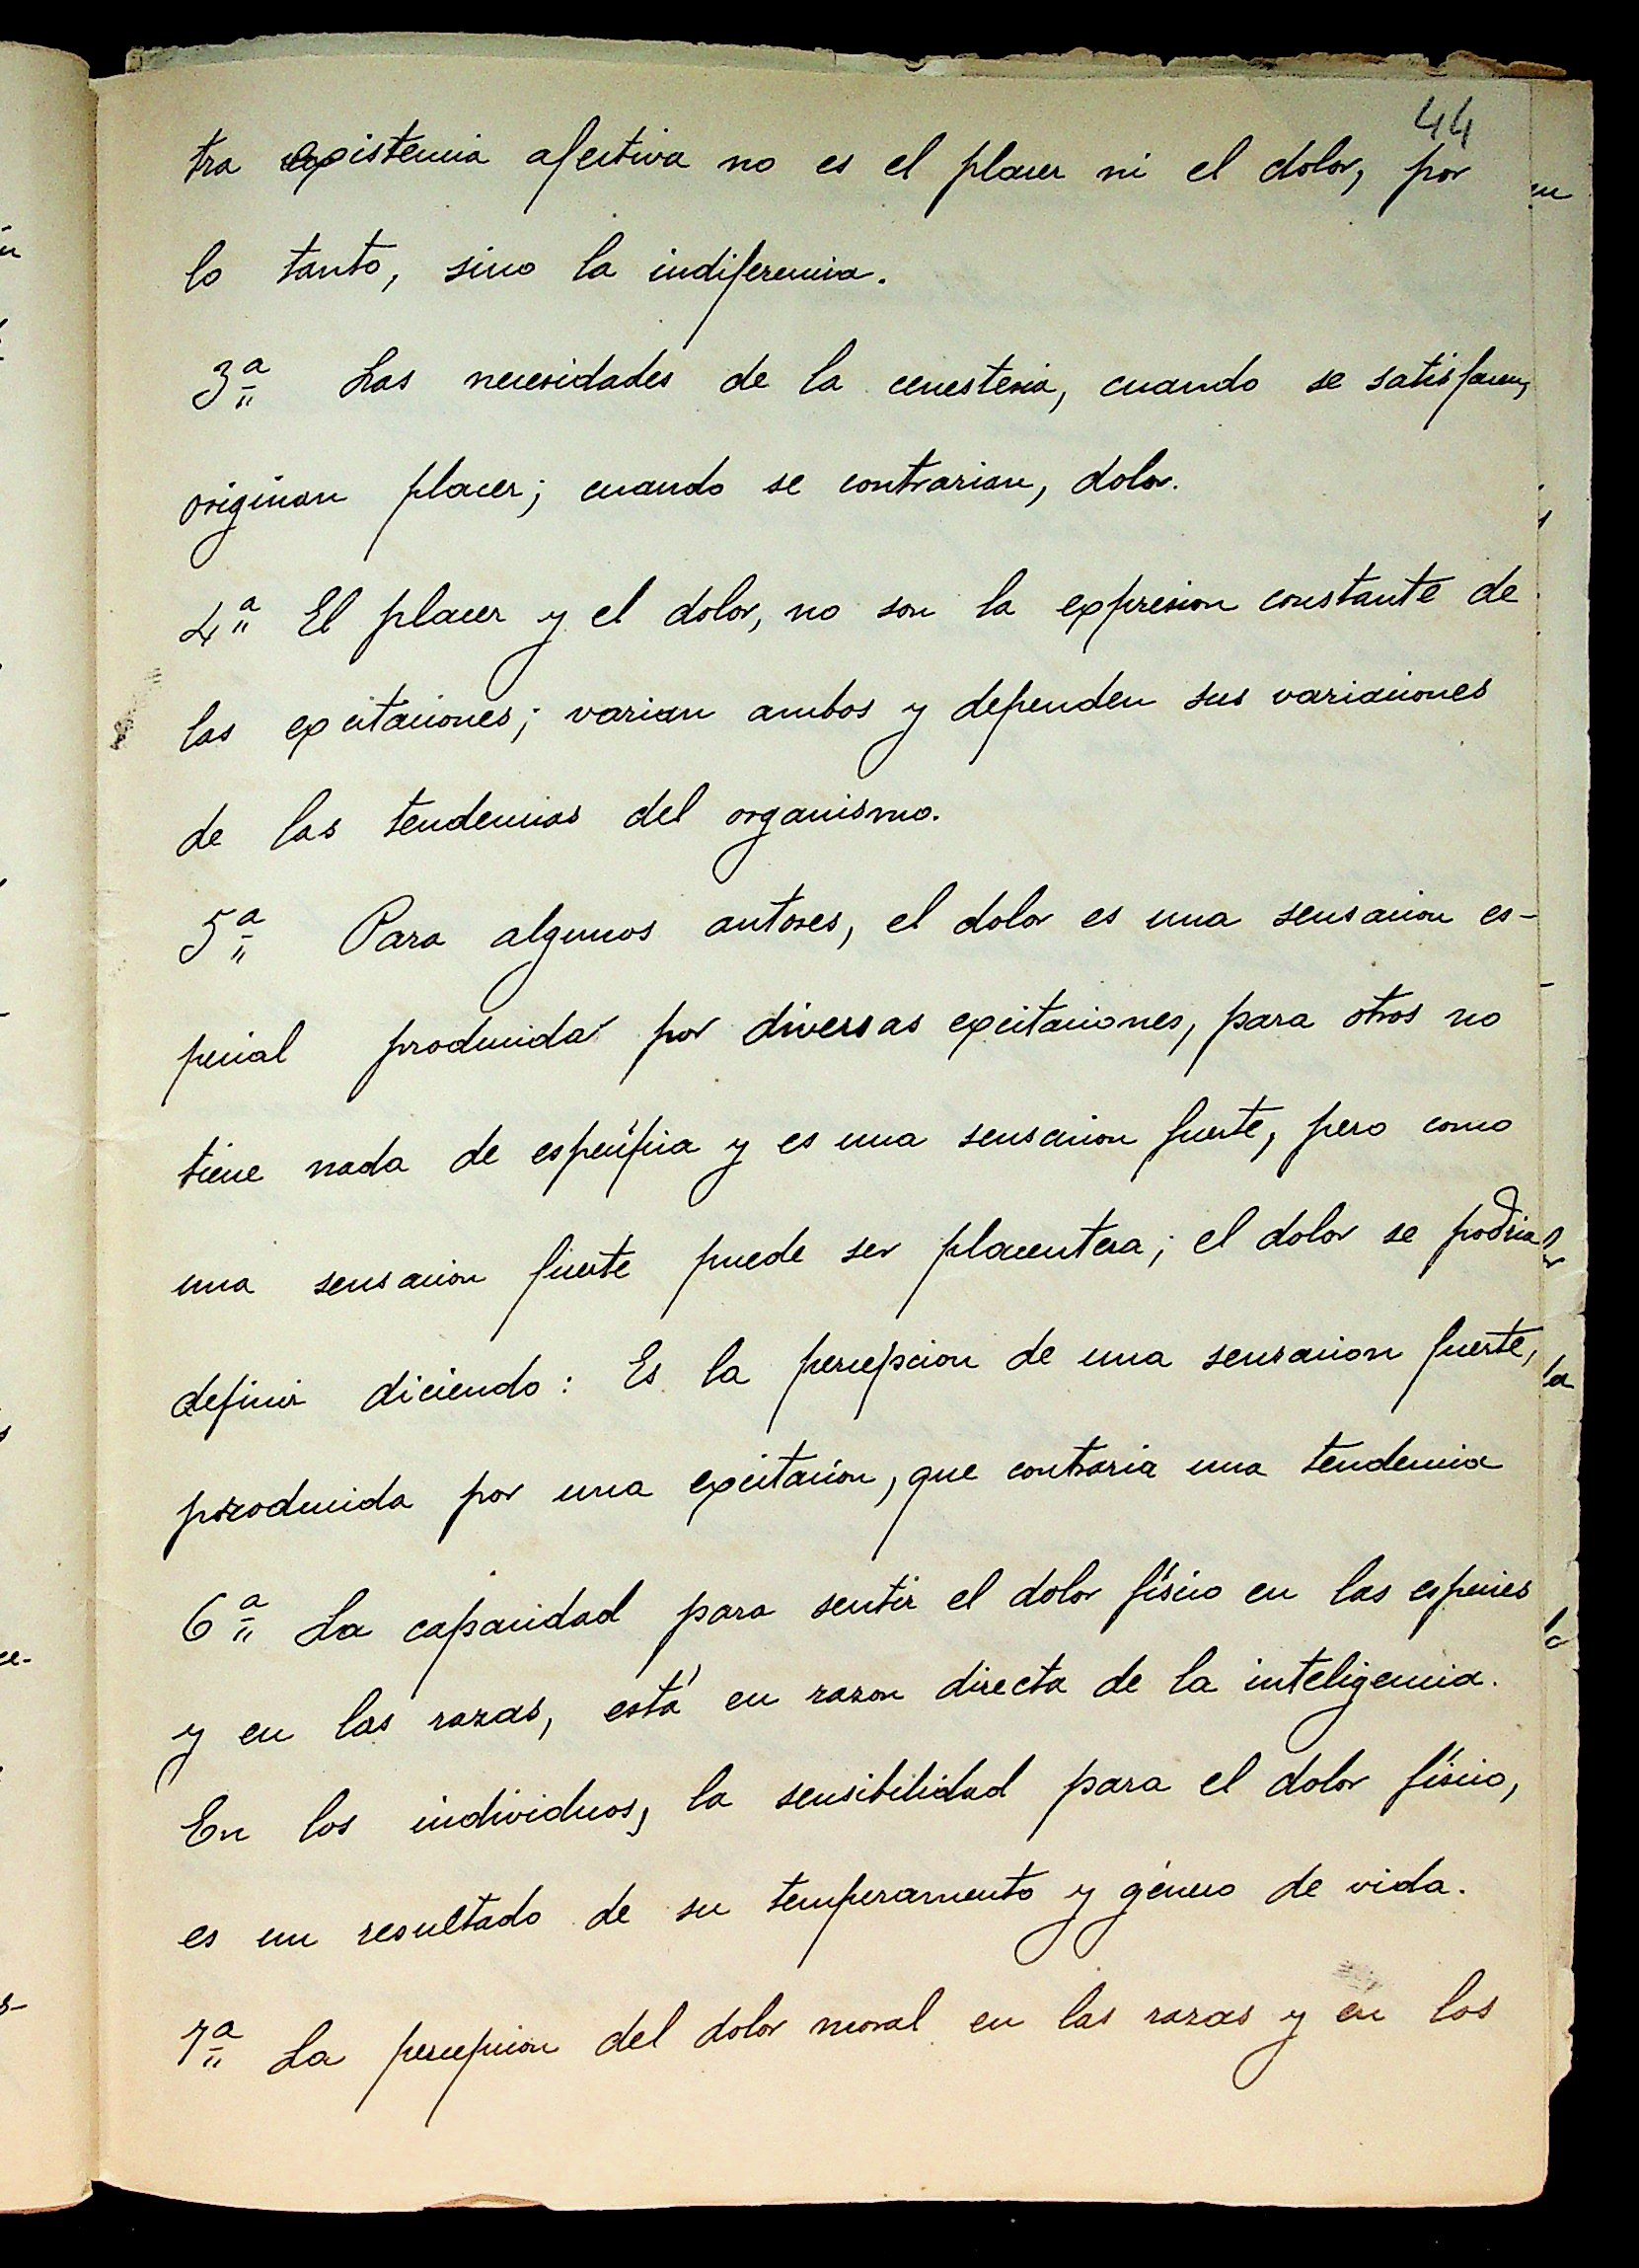 44
tra existencia afectiva no es el placer ni el dolor, por
lo tanto, sino la indiferencia.
3ª Las necesidades de la cenestesia, cuando se satisfacen,
originan placer; cuando se contrarian, dolor.
4ª El placer y el dolor, no son la expresion constante de
las excitaciones; varian ambos y dependen sus variaciones
de las tendencias del organismo.
5ª Para algunos autores, el dolor es una sensacion es-
pecial producida por diversas excitaciones, para otros no
tiene nada de específica y es una sensacion fuerte, pero como
una sensacion fuerte puede ser placentera; el dolor se podria
definir diciendo: Es la percepcion de una sensacion fuerte,
producida por una excitación, que contraria una tendencia
6ª La capacidad para sentir el dolor físico en las especies
y en las razas, está en razon directa de la inteligencia.
En los individuos, la sensibilidad para el dolor físico,
es un resultado de su temperamento y género de vida.
7ª La percepcion del dolor moral en las razas y en los